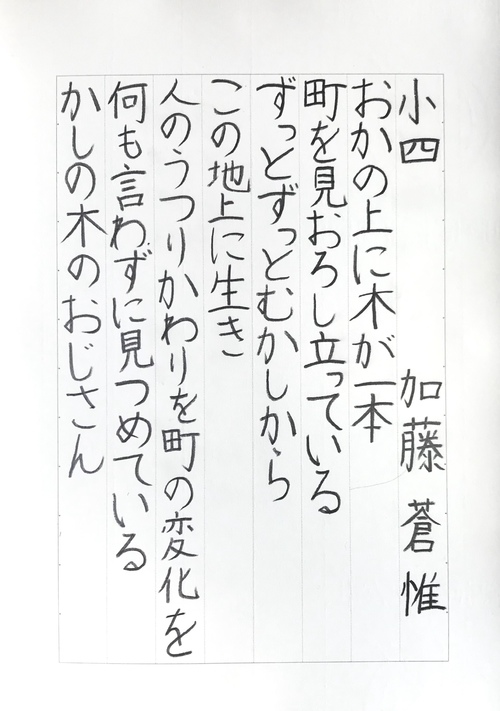 小四 加藤 蒼惟
おかの上に木が一本
町を見おろし立っている
ずっとずっとむかしから
この地上に生き
人のうつりかわりを町の変化を
何も言わずに見つめている
かしの木のおじさん